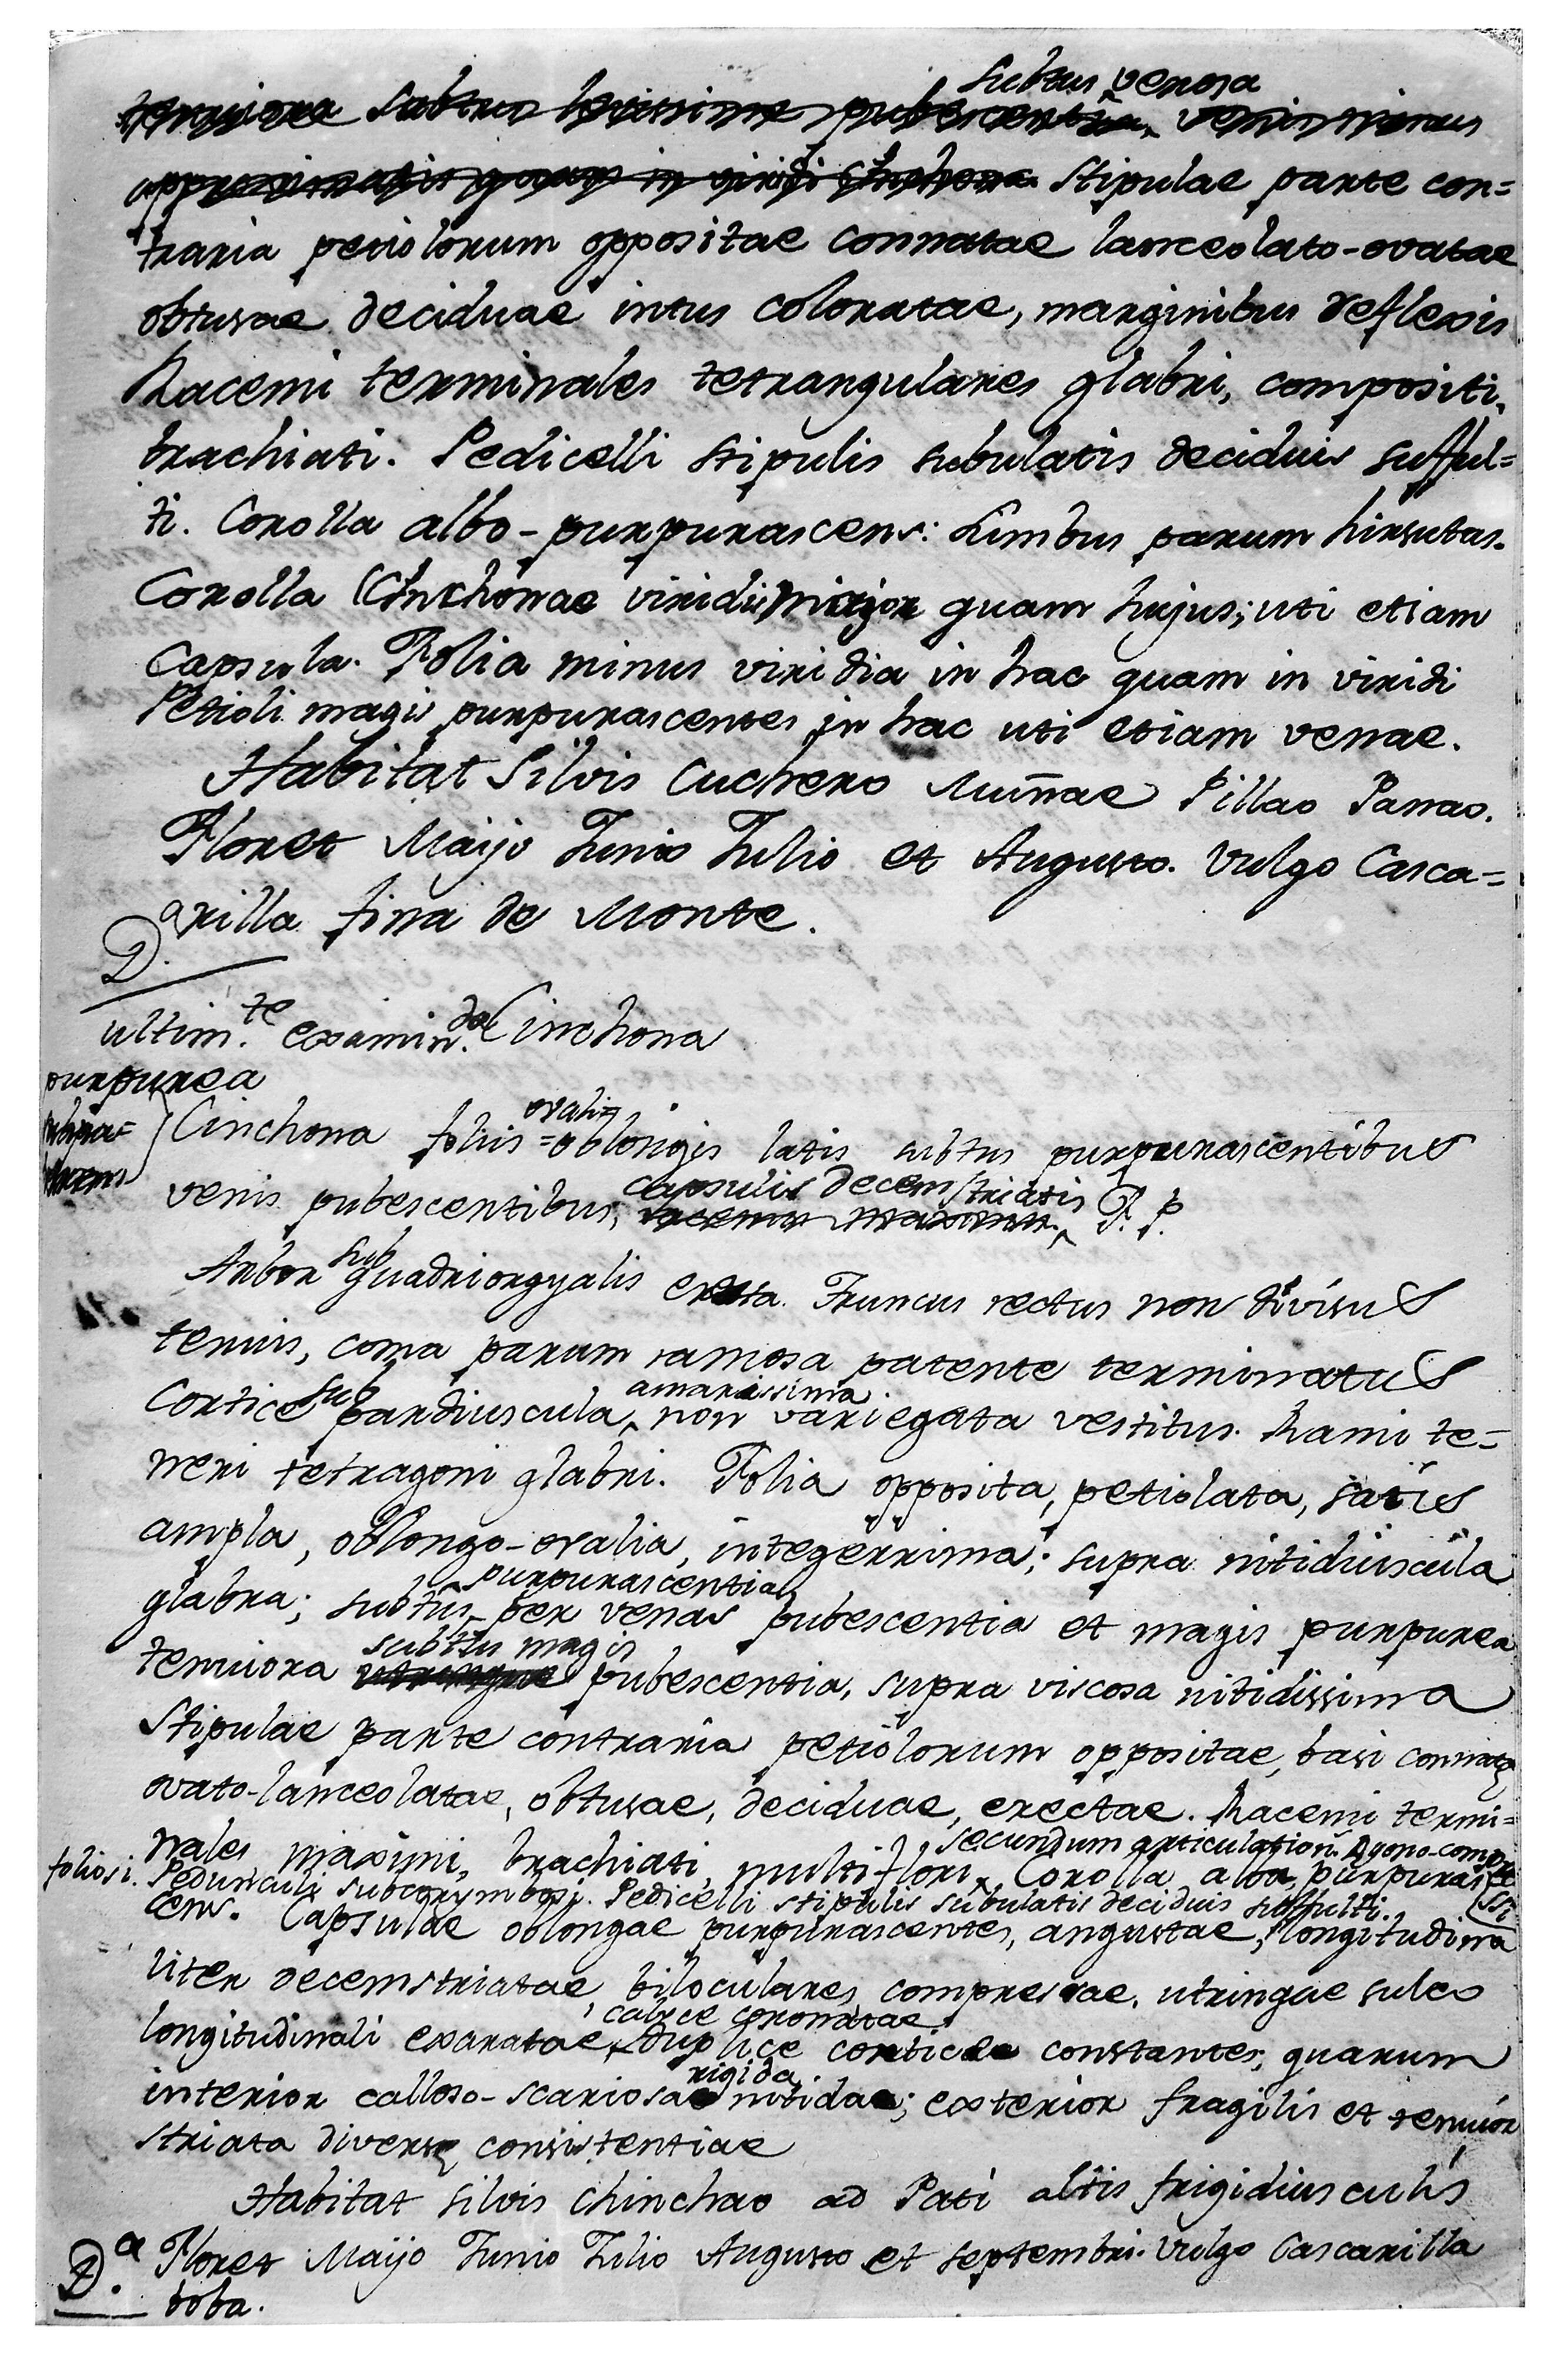 subtus venosa
tenuiora subtus levissime pubescentia, venis minus
approximatis quam in viridi Cinchona. Stipulae parte con=
traria petiolorum oppositae connatae lanceolato-ovatae
obtusae deciduae intus coloratae, marginibus reflexis
Racemi terminales tetrangulares glabri, compositi,
brachiati. Pedicelli stipulis subulatis deciduis sufful=
ti. Corolla albo-purpurascens: Limbus parum hirsutus.
Corolla Cinchonae viridis major quam hujus; uti etiam
Capsula. Folia minus viridia in hac quam in viridi
Petioli magis purpurascentes in hac uti etiam venae.
Habitat Silvis Cuchero Muñae Pillao Panao.
Floret Maijo Junio Julio et Augusto. Vulgo Casca=
arilla fina de Monte.
D.
ultim.te examin.da Cinchona
purpurea
Cinchona foliis =oblongis latis subtus purpurascentibus
ovali=
venis pubescentibus, F. P.
capsulis decemstriatis
Arbor sub quadriorgyalis erecta. Truncus rectus non divisus
tenuis, coma parum ramosa patente terminatus
Cortice sub pardiuscula, non variegata vestitus. Rami te=
amarissima
neri tetragoni glabri. Folia opposita, petiolata, satis
ampla, oblongo-ovalia, integerrima; supra nitidiuscula
glabra; subtus per venas pubescentia et magis purpurea
purpurascentia
tenuiora utrinque pubescentia, supra viscosa nitidissima
subtus magis
Stipulae parte contraria petiolorum oppositae, basi connatae
ovato-lanceolatae, obtusae, deciduae, erectae. Racemi termi=
nales maximi, brachiati, multiflori, Corolla alba, purpuras=
secundum articulation. Agono-compre
ssi
foliosi. Pedunculi subcorymbosi. Pedicelli stipulis subulatis deciduis suffulti.
cens. Capsulae oblongae purpurascentes, angustae, longitudina
liter decemstriatae, biloculares, compressae, utrinque sulco
longitudinali exaratae, duplice corticae constantes, quarum
calyce coronatae
interior calloso-scariosa nitida; exterior fragilis et tenuior
rigida
striata diversae consistentiae
Habitat silvis Chinchao ad Pati altis frigidiusculis
D.a Floret Maijo Junio Julio Augusto et Septembri. Vulgo Cascarilla
boba.